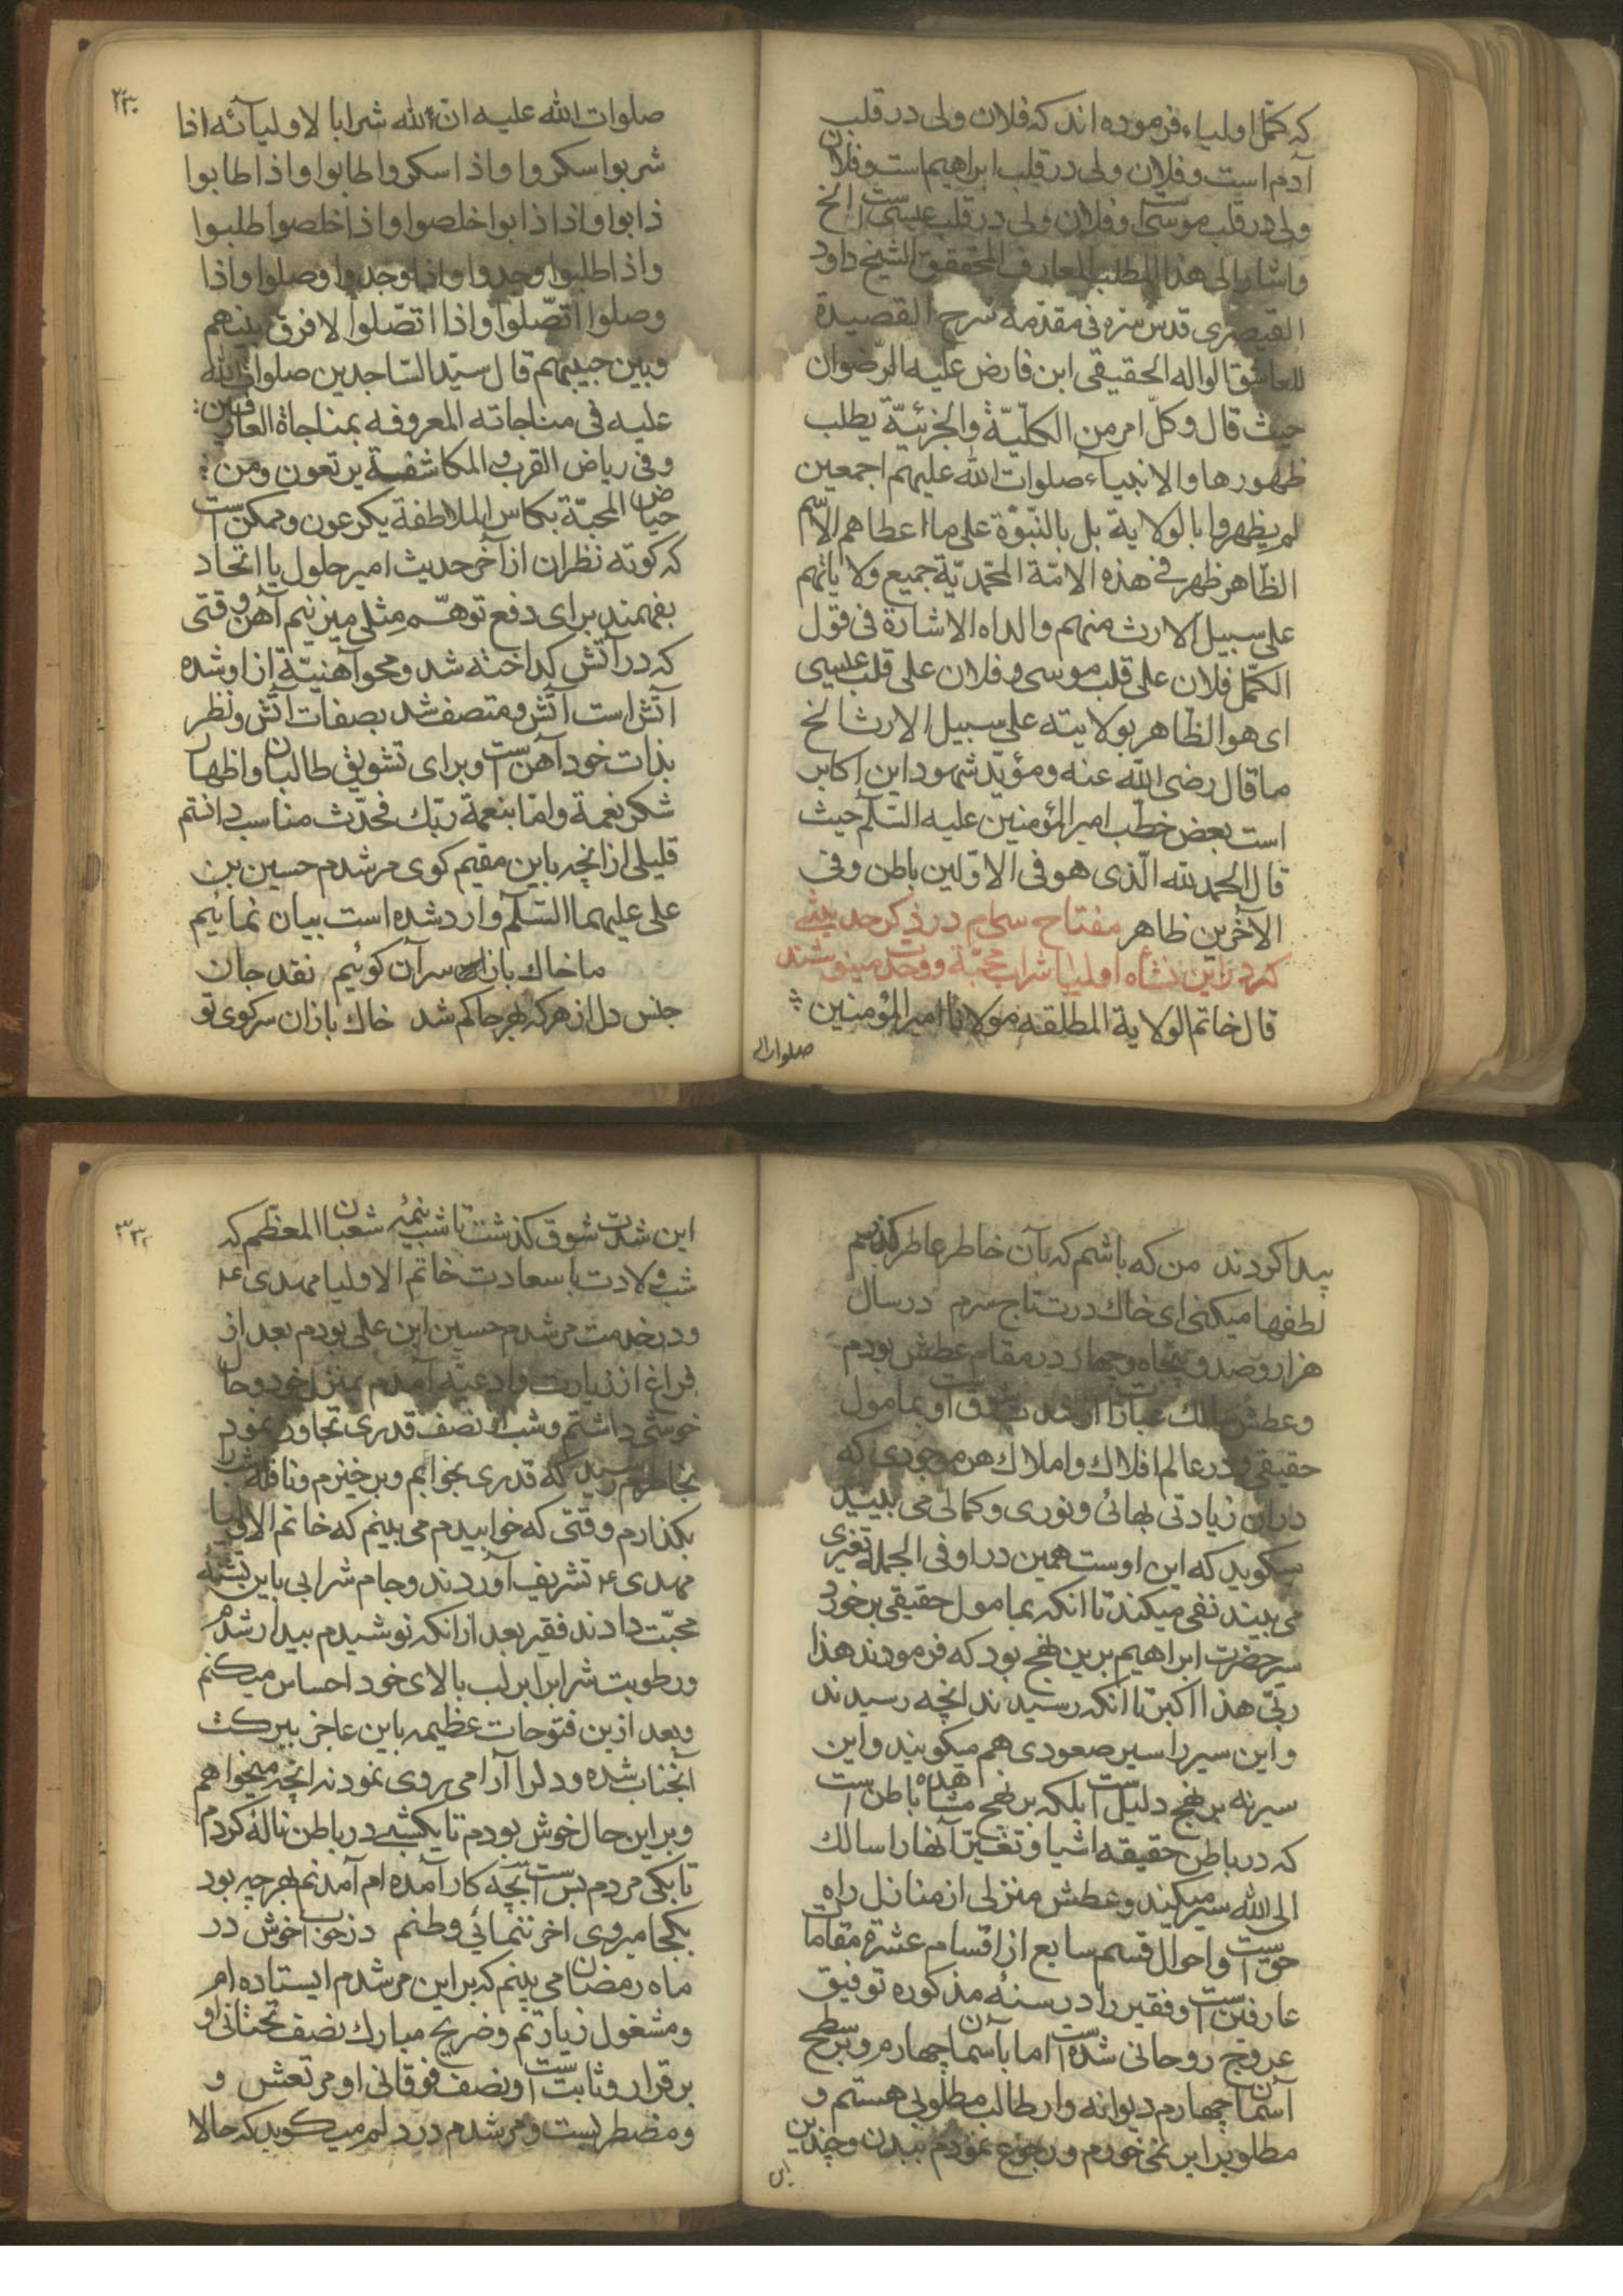 که کمّل اولیاء فرموده اند که فلان ولی در قلب
آدم است و فلان ولی در قلب ابراهیم است و فلان
ولی در قلب موسی است و فلان ولی در قلب عیسی است الخ
واشار الی هذا المطلب العارف المحقق الشیخ داود
القیصری قدس سره فی مقدمة شرح القصیدة
للعاشق الواله الحقیقی ابن فارض علیه الرّضوان
حیث قال وکلّ امر من الکلّیّة والجزئیّة یطلب
ظهورها والانبیاء صلوات الله علیهم اجمعین
لم یظهروا بالولایة بل بالنّبوّة علی ما اعطاهم الاسم
الظاهر ظهر فی هذه الامّة المحمّدیّة جمیع ولایاتهم
علی سبیل الارث منهم والداه الاشارة فی قول
الکمّل فلان علی قلب موسی وفلان علی قلب عیسی
ای هو الظّاهر بولایته علی سبیل الارث الخ
ما قال رضی الله عنه و مؤیّد شهود این اکابر
است بعض خطب امیر المؤمنین علیه السّلم حیث
قال الحمد لله الّذی هو فی الاوّلین باطن وفی
الآخرین ظاهر مفتاح سی‌ام در ذکر حدیثی
که در این نشأه اولیا شراب محبّة و وحدت مینوشند
قال خاتم الولایة المطلقه مولانا امیر المؤمنین
صلوات الله
۲۳۰
صلوات الله علیه انّ لله شرابا لاولیآئه اذا
شربوا سکروا واذا سکروا طابوا واذا طابوا
ذابوا واذا ذابوا خلصوا واذا خلصوا طلبوا
واذا طلبوا وجدوا واذا وجدوا وصلوا واذا
وصلوا اتّصلوا واذا اتّصلوا لا فرق بینهم
وبین حبیبهم قال سیّد السّاجدین صلوات الله
علیه فی مناجاته المعروفه بمناجاة العارفین
وفی ریاض القرب والمکاشفة یرتعون ومن
حیاض المحبّة بکاس الملاطفة یکرعون و ممکن است
که کوته نظران از آخر حدیث امیر حلول یا اتحاد
بفهمند برای دفع توهّم مثلی میزنیم آهن وقتی
که در آتش کداخته شد و محو آهنیّة از او شده
آتش است آتش و متصف شد بصفات آتش و نظر
بذات خود آهن است و برای تشویق طالبان و اظهار
شکر نعمة وامّا بنعمة ربّک فحدّث مناسب دانستم
قلیلی از انچه باین مقیم کوی مرشدم حسین بن
علی علیهما السّلم وارد شده است بیان نمائیم
ما خاک بازان سر آن کوئیم نقد جان
جنس دل از هر که هر جا کم شد خاک بازان سر کوی تو
پیدا کردند من که باشم که بآن خاطر عاطر کذرم
لطفها میکنی ای خاک درت تاج سرم در سال
هزار و صد و پنجاه و چهار در مقام عطش بودم
و عطش سالک عبارت از شدت شوق است او بمامول
حقیقی و در عالم افلاک و املاک هر موجودی که
در ان زیادتی بهائی و نوری و کمالی می بیند
میکوید که این اوست همین در او فی الجمله تغیری
می بیند نفی میکند تا انکه بمامول حقیقی برخورد
سیر حضرت ابراهیم برین نهج بود که فرمودند هذا
ربّی هذا اکبر تا انکه رسیدند انچه رسیدند
و این سیر را سیر صعودی هم میکویند و این
سیر نه بر نهج دلیل است بلکه بر نهج مشاهده باطن است
که در باطن حقیقه اشیا و تغیّر آنها را سالک
الی الله سیر میکند و عطش منزلی از منازل راه
حق است و احوال قسم سابع از اقسام عشره مقامات
عارفین است و فقیر را در سنهٔ مذکوره توفیق
عروج روحانی شده است اما باسمان چهارم و بر سطح
آسمان چهارم دیوانه وار طالب مطلوبی هستم و
مطلوبرا بر نمی خورم و رجوع نمودم ببدن و چندین
این
۲۳۱
این شدت شوق کذشت تا شب نیمهٔ شعبان المعظم که
شب ولادت با سعادت خاتم الاولیا مهدی ع
و در خدمت مرشدم حسین ابن علی بودم بعد از
فراغ از زیارت و ادعیه آمدم بمنزل خود و حال
خوشی داشتم و شب از نصف قدری تجاوز نمود
بخاطرم رسید که قدری بخوابم و برخیزم و نافله شبرا
بکذارم وقتی که خوابیدم می بینم که خاتم الاولیا
مهدی ع تشریف آوردند و جام شرابی باین تشنهٔ
محبّت دادند فقیر بعد از انکه نوشیدم بیدار شدم
و رطوبت شرابرا بر لب بالای خود احساس میکنم
و بعد ازین فتوحات عظیمه باین عاجز ببرکت
آنجناب شده و دلرا آرامی روی نمود نه انچه میخواهم
و بر این حال خوش بودم تا یکشبی در باطن ناله کردم
تا بکی مردم بس است بچه کار آمده ام آمدنم بهر چه بود
بکجا میروی اخر ننمائی وطنم در خوابی خوش در
ماه رمضان می بینم که برابر این مرشدم ایستاده ام
و مشغول زیارتم و ضریح مبارک نصف تحتانی او
بر قرار و ثابت است و نصف فوقانی او مرتعش و
و مضطر بست و مرشدم در دلم میکوید که حالا